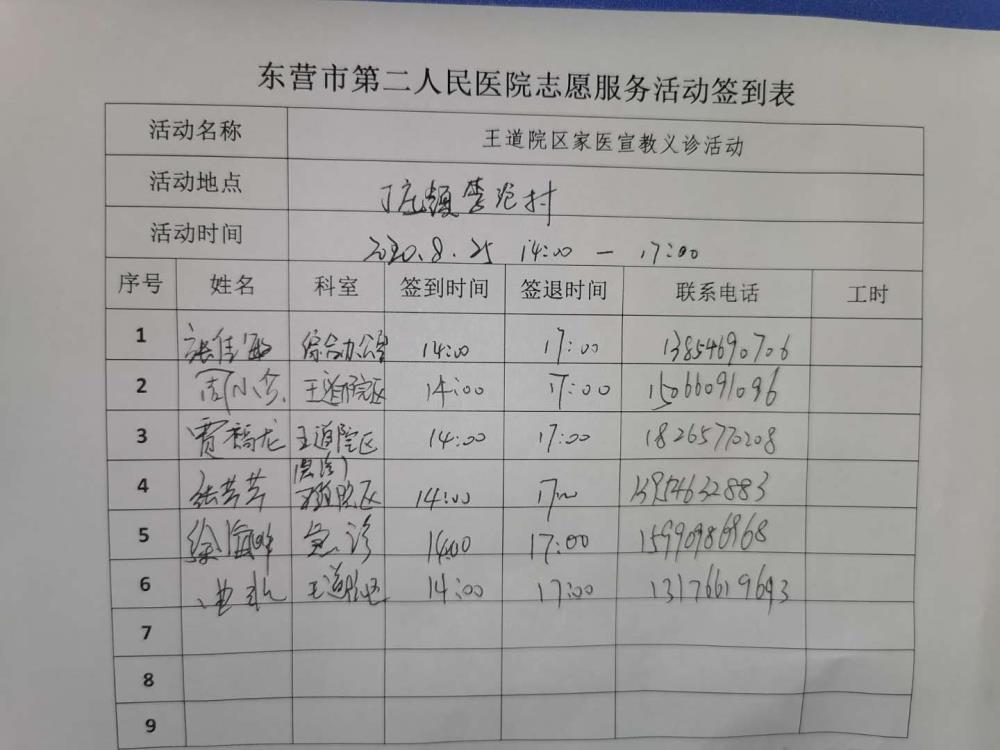 东营市第二人民医院志愿服务活动签到表
活动名称 王道院区家医宣教义诊活动
活动地点 丁庄镇 村
活动时间 2020.8.25 14:00 — 17:00
序号 姓名 科室 签到时间 签退时间 联系电话 工时
1 张佳 综合办公室 14:00 17:00 13854690706
2 周小 王道院区 14:00 17:00 15066091096
3 贾福龙 王道院区 14:00 17:00 18265770208
4 张芳芳 院区 14:00 17:00 13954632883
5 徐海 急诊 14:00 17:00 15990986868
6 曲 王道院区 14:00 17:00 13176619693
7
8
9